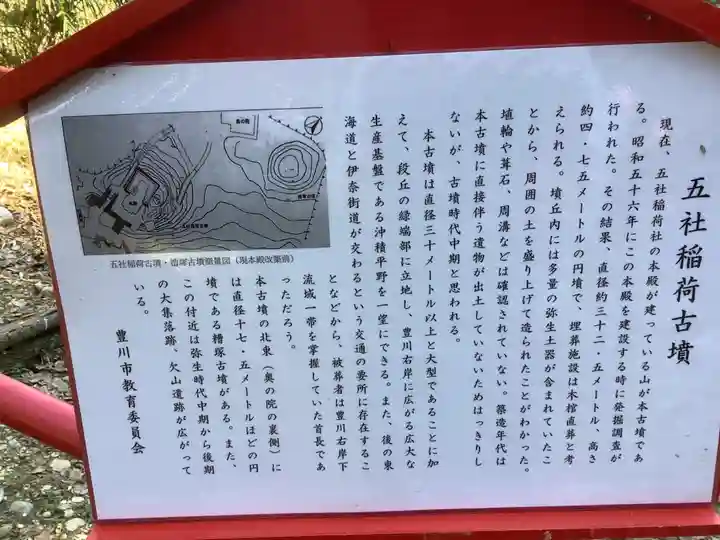 五社稲荷古墳
現在、五社稲荷社の本殿が建っている山が本古墳であ
る。昭和五十六年にこの本殿を建設する時に発掘調査が
行われた。その結果、直径約三十二・五メートル、高さ
約四・七五メートルの円墳で、埋葬施設は木棺直葬と考
えられる。墳丘内には多量の弥生土器が含まれていたこ
とから、周囲の土を盛り上げて造られたことがわかった。
埴輪や葺石、周溝などは確認されていない。築造年代は
本古墳に直接伴う遺物が出土していないためはっきりし
ないが、古墳時代中期と思われる。
本古墳は直径三十メートル以上と大型であることに加
えて、段丘の縁端部に立地し、豊川右岸に広がる広大な
生産基盤である沖積平野を一望にできる。また、後の東
海道と伊奈街道が交わるという交通の要所に存在するこ
となどから、被葬者は豊川右岸下
流域一帯を掌握していた首長であ
っただろう。
本古墳の北東（奥の院の裏側）に
は直径十七・五メートルほどの円
墳である糟塚古墳がある。また、
この付近は弥生時代中期から後期
の大集落跡、欠山遺跡が広がって
いる。
豊川市教育委員会
五社稲荷古墳・糟塚古墳測量図（現本殿改築前）